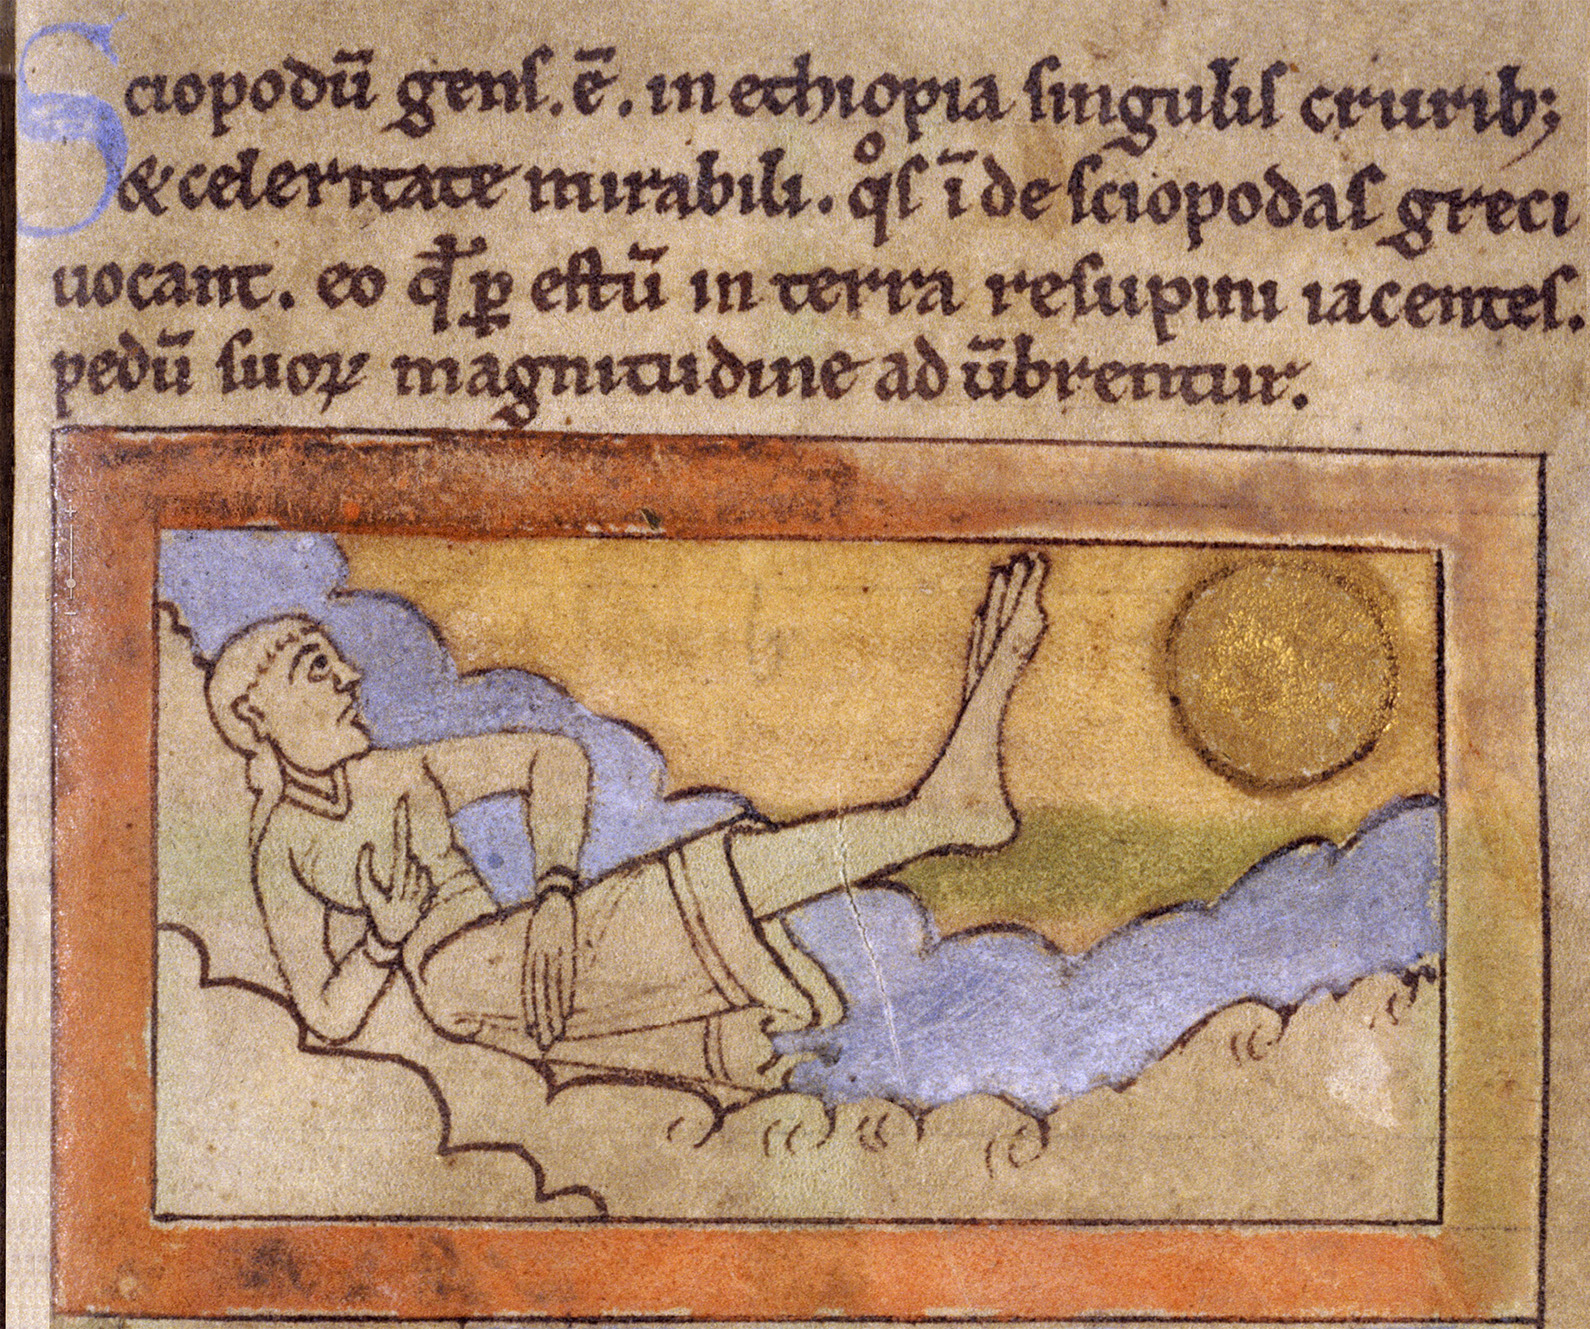 Sciopodū gens. ē. in ethiopia singulis crurib;
& celeritate mirabili. qͦs ī de sciopodas greci
uocant. eo qđ ꝑ estū in terra resupini iacentes.
pedū suoꝝ magnitudine ad ūbrentur.